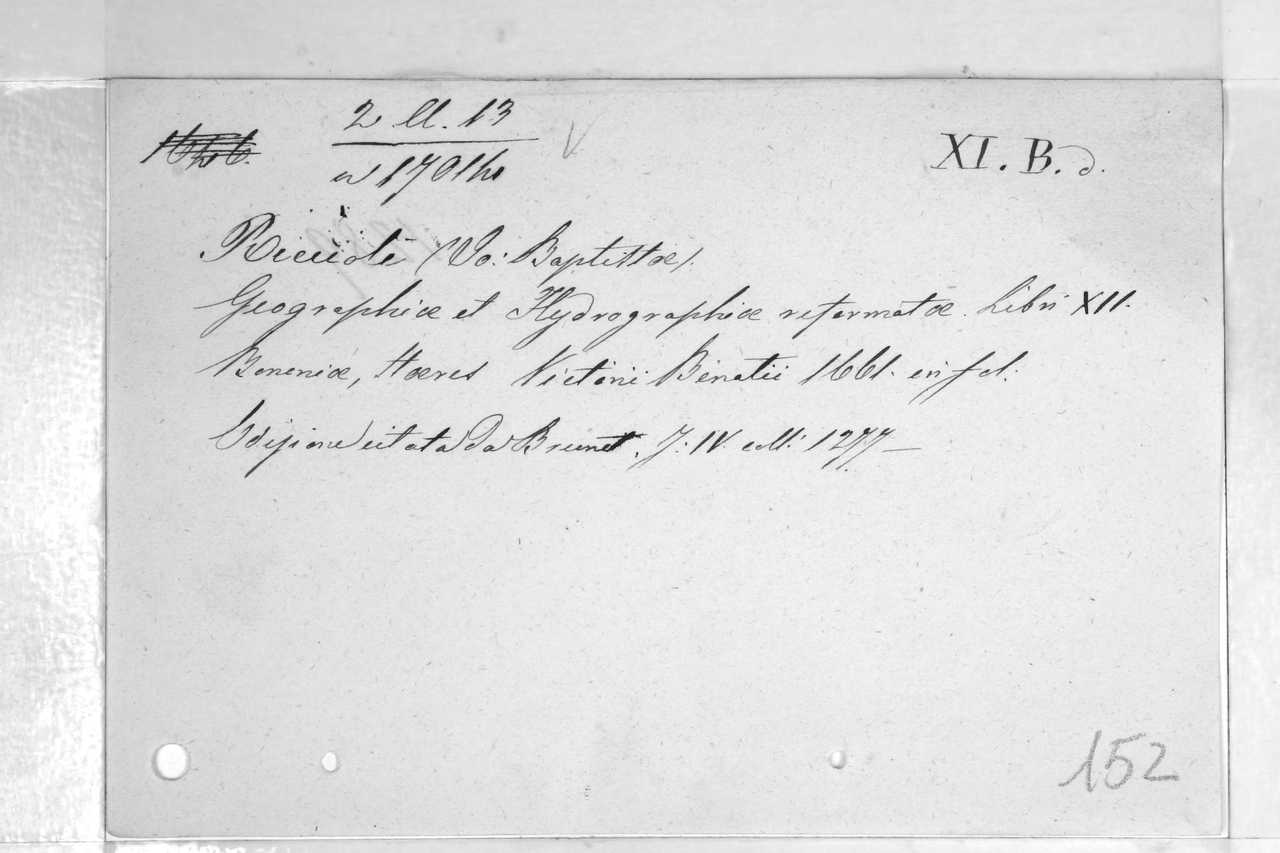 2 ll. 13
XI. B. d.
Riccioli (Jo: Baptistæ).
Geographiæ et Hydrographiæ reformatæ. Libri XII.
Bononiæ, Hæres Victorii Benatii 1661. in fol.
Edizione citata da Brunet. T. IV. coll: 1277 —
152